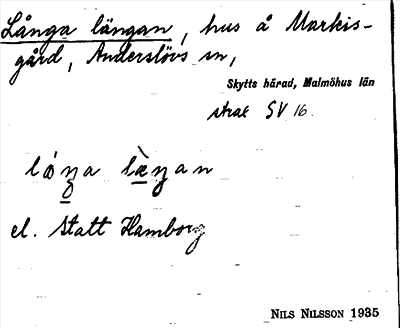 Långa längan, hus å Markis-
gård, Anderslövs sn,
Skytts härad, Malmöhus län
strax SV 16.
lǻŋa læ̀ŋan
el. Statt Hamborg
NILS NILSSON 1935